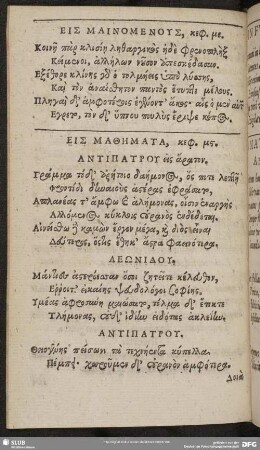 ΕΙΣ ΜΑΙΝΟΜΕΝΟΥΣ, κεφ. με.
Κοινῇ πὰρ κλισίῃ ληθαργικὸς ἠδὲ φρενοπλὴξ
Κείμενοι, ἀλλήλων νοῦσον ἀπεσκέδασαν.
Ἐξέθορε κλίνης γὰρ ὁ τολμήεις ὑπὸ λύσσης,
Καὶ τὸν ἀναίσθητον παντὸς ἔτυπτε μέλους.
Πληγαὶ δ' ἀμφοτέροις ἐγένοντ' ἄκος· αἷς ὁ μὲν αὐτῶν
Ἔγρετο, τὸν δ' ὕπνῳ πουλὺς ἔριψε κόπος.
ΕΙΣ ΜΑΘΗΜΑΤΑ, κεφ. μς.
ΑΝΤΙΠΑΤΡΟΥ εἰς ἄρατον.
Γράμμα τόδ' ἀρήτοιο δαήμονος, ὅς ποτε λεπτῇ
φροντίδι δηναιοὺς ἀστέρας ἐφράσατο,
Ἀπλανέας τ' ἄμφω καὶ ἀλήμονας, οἷσιν ἐναργὴς
Ἰλλόμενος κύκλοις οὐρανὸς ἐνδέδεται.
Αἰνείσθω γὰρ καμὼν ἔργον μέγα, καὶ διὸς εἶναι
Δεύτερος, ὅστις ἔθηκ' ἄστρα φαεινότερα.
ΛΕΩΝΙΔΟΥ.
Μάντιες ἀστερόεσσαν ὅσοι ζητεῖτε κέλευθον,
Ἔρροιτ', εἰκαίης ψευδολόγοι σοφίης,
Ὑμέας ἀφροσύνη μαιώσατο, τόλμα δ' ἔτικτε
Τλήμονας, οὐδ' ἰδίην εἰδότας ἀκλείην.
ΑΝΤΙΠΑΤΡΟΥ.
Θειογένης πείσωνι τὰ τεχνήεντα κύπελλα
Πέμπει· χωροῦμεν δ' οὐρανὸν ἀμφότερα.
Δοιὰ
SLUB
DFG